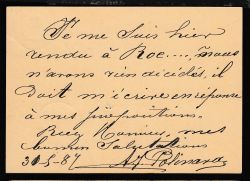 Je me suis hier
rendu à Roc...., nous
n'avons rien décidés, il
doit m'écrire en réponse
à mes propositions.
Recev Monsieur, mes
bonnes Salutations
30-5-87